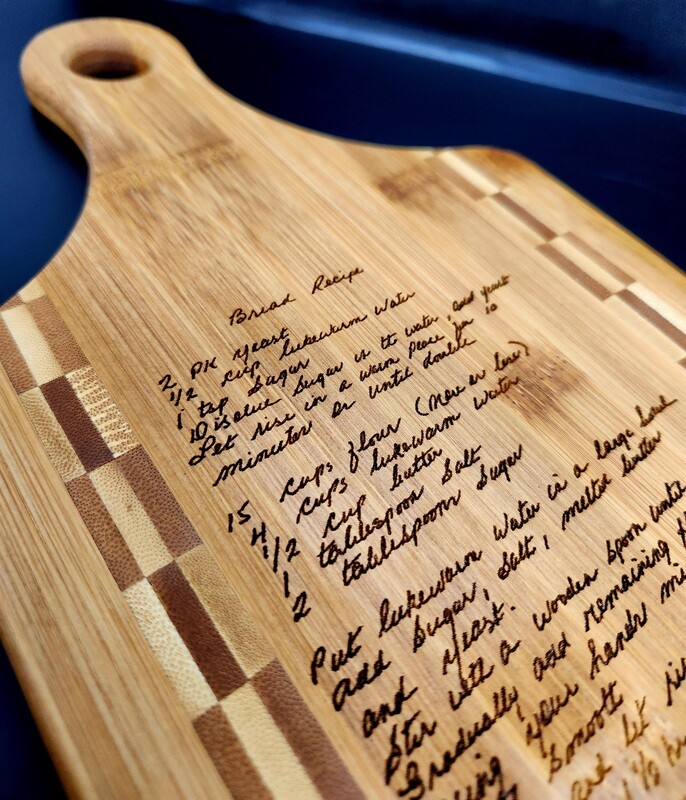 Bread Recipe
2 PK yeast
1/2 cup lukewarm water
1 tsp sugar
Disolve sugar in the water, add yeast
Let rise in a warm place for 10
minutes or until double
15 cups flour (more or less)
4 cups lukewarm water
1/2 cup butter
1 tablespoon salt
2 tablespoons sugar
Put lukewarm water in a large bowl
add sugar, salt, melted butter
and yeast.
Stir with a wooden spoon
Gradually add remaining
your hands
smooth
and let
1/2